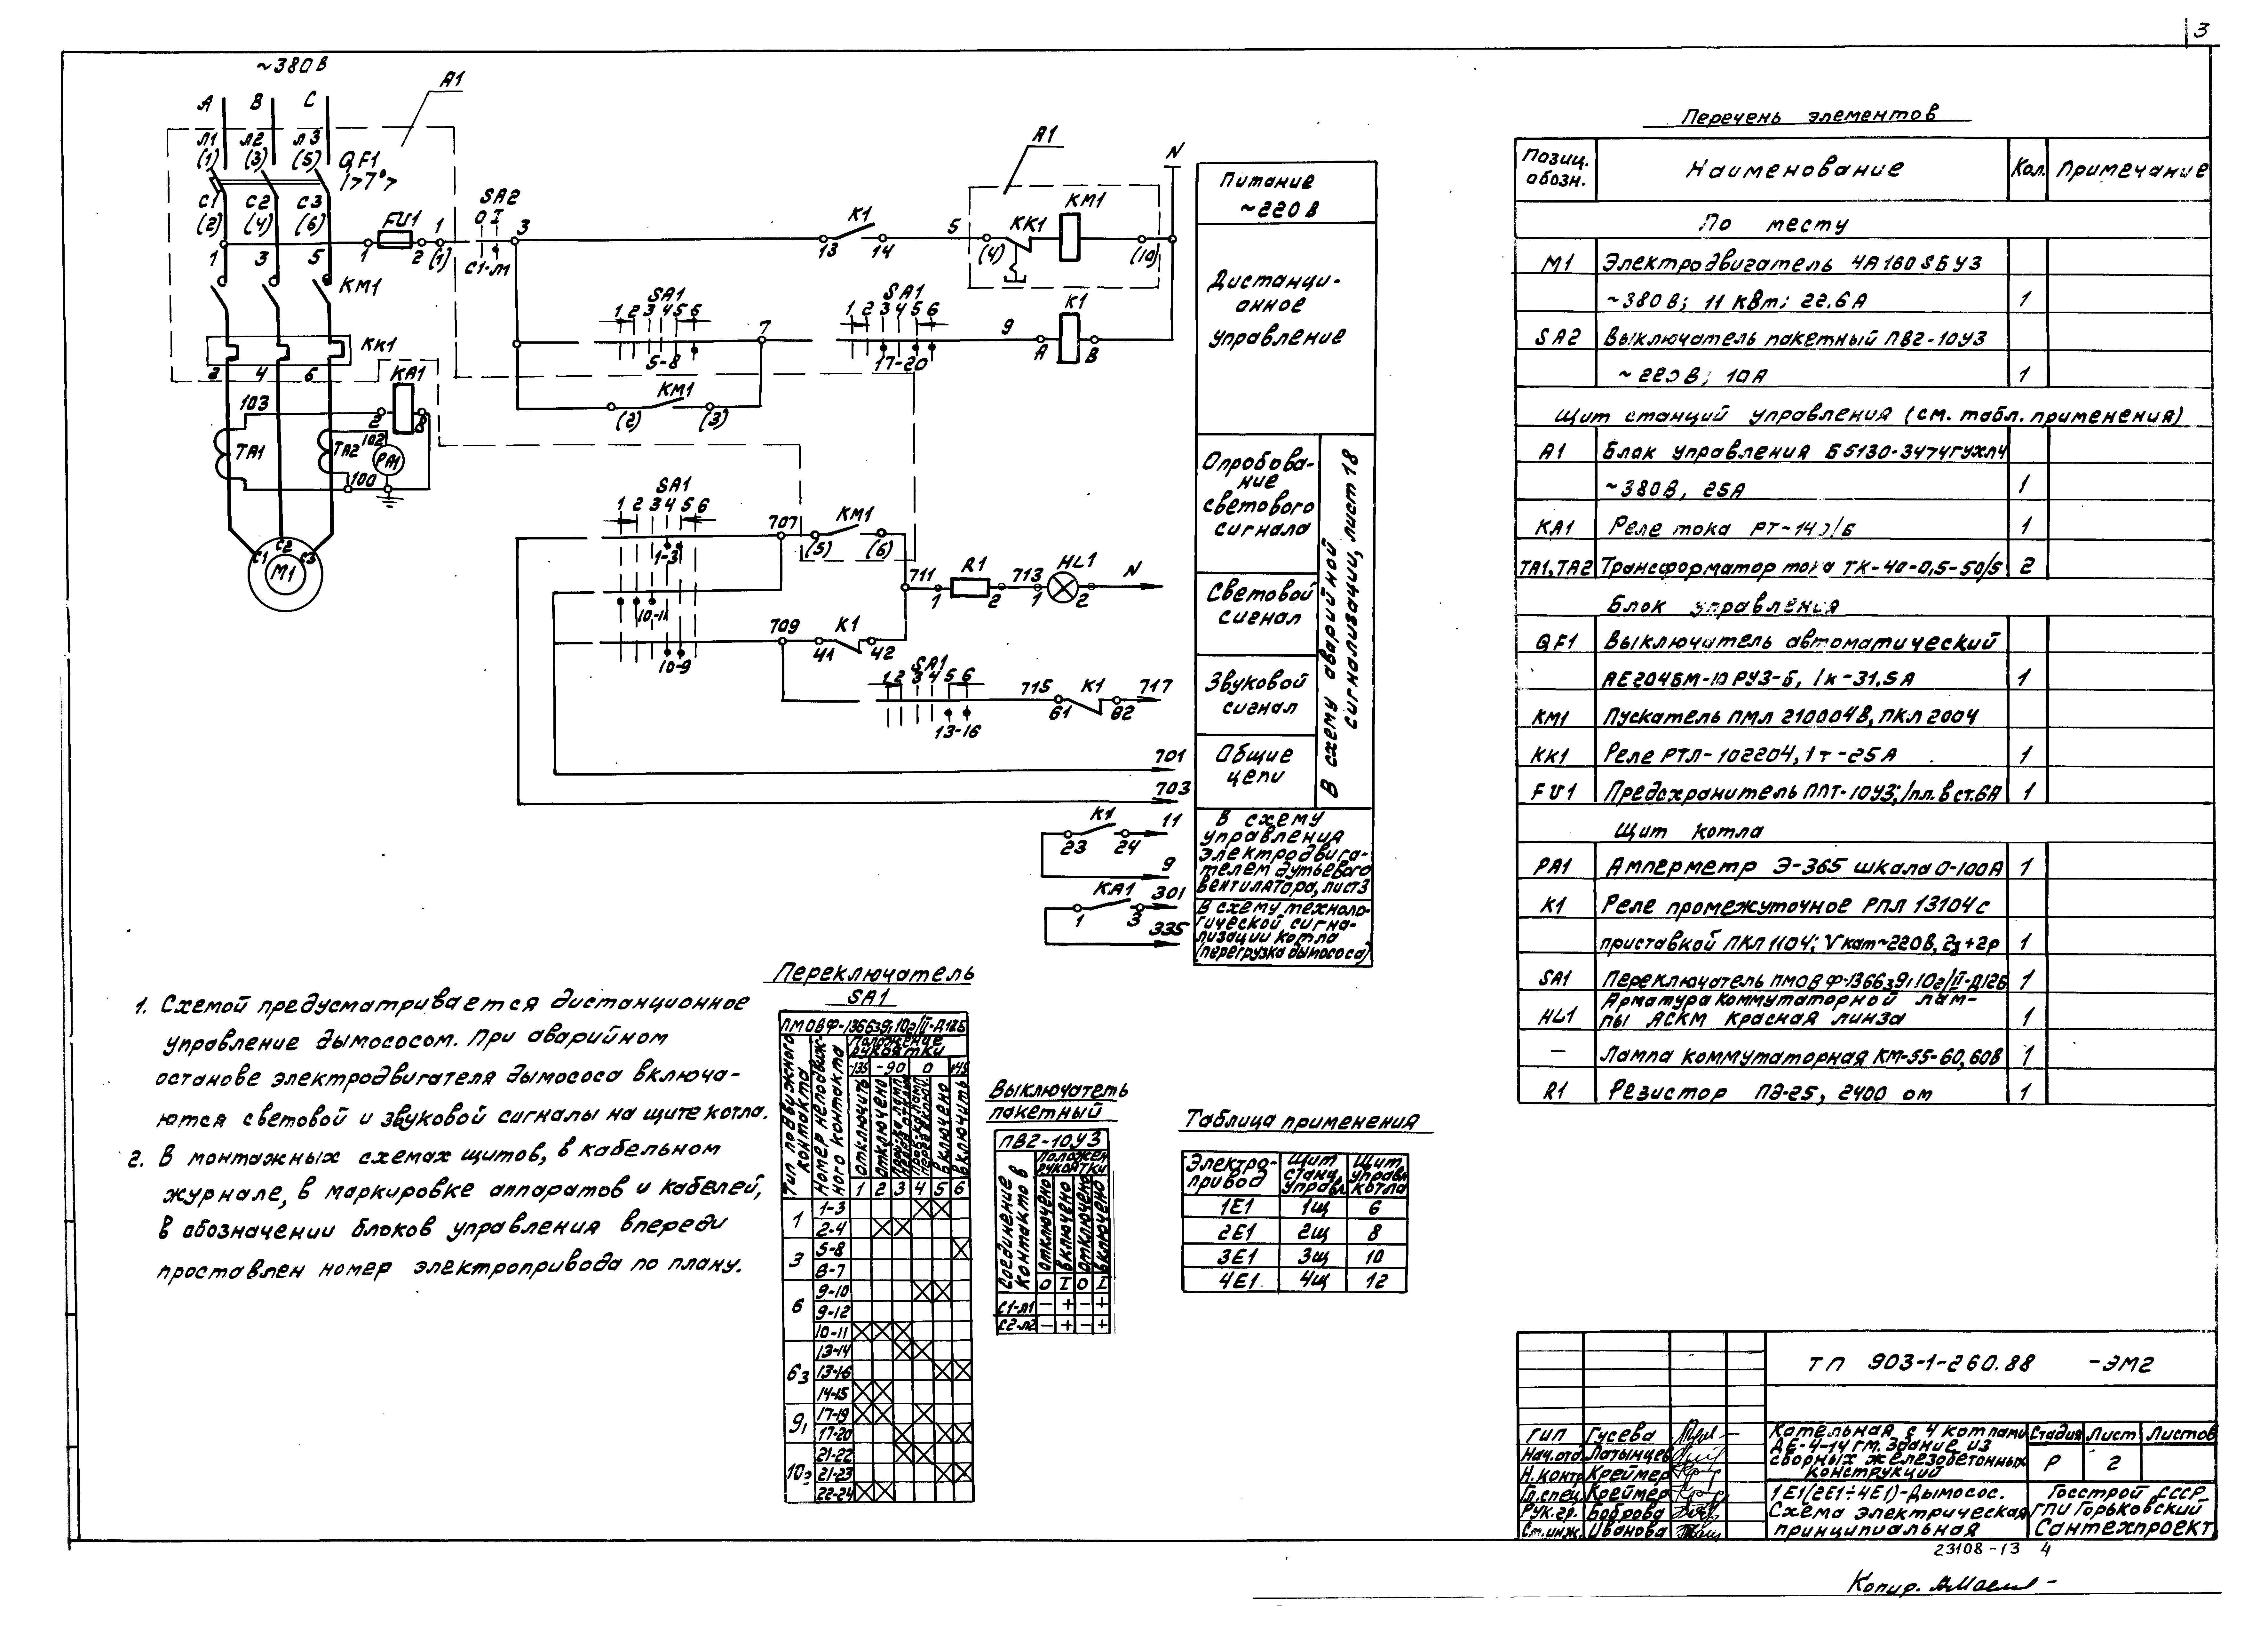 3
~380В
А1
А В С
Л1 Л2 Л3
(1) (3) (5)
QF1
I>7°>
С1 С2 С3
(2) (4) (6)
FU1
1 3 5
1 2 1 (1)
SA2
0 I
С1-Л1
3
К1
13 14
5
А1
КК1
КМ1
(4) (10)
N
КМ1
КК1
2 4 6
SA1
1 2 3 4 5 6
5-8
7
SA1
1 2 3 4 5 6
17-20
9
К1
А В
КМ1
(2) (3)
КА1
103
2
8
102
ТА1
ТА2
РА1
100
С1 С2 С3
М1
SA1
1 2 3 4 5 6
1-3
707
КМ1
(5) (6)
10-11
711
R1
1 2
713
HL1
1 2
N
709
К1
41 42
10-9
SA1
1 2 3 4 5 6
13-16
715
К1
61 62
717
701
703
К1
23 24
11
9
КА1
1 3
301
335
Питание
~220В
Дистанци-
онное
управление
Опробова-
ние
светового
сигнала
Световой
сигнал
Звуковой
сигнал
Общие
цепи
В схему аварийной
сигнализации, лист 18
В схему
управления
электродвига-
телем дутьевого
вентилятора, лист 3
В схему техноло-
гической сигна-
лизации котла
(перегрузка дымососа)
Перечень элементов
Позиц. обозн. Наименование Кол. Примечание
По месту
М1 Электродвигатель 4А160S6У3
~380В; 11 кВт; 22.6А 1
SA2 Выключатель пакетный ПВ2-10У3
~220В; 10А 1
Щит станций управления (см. табл. применения)
А1 Блок управления Б5130-3474ГУХЛ4
~380В, 25А 1
КА1 Реле тока РТ-140/6 1
ТА1,ТА2 Трансформатор тока ТК-40-0,5-50/5 2
Блок управления
QF1 Выключатель автоматический
АЕ2046М-10РУ3-Б, Iк-31,5А 1
КМ1 Пускатель ПМЛ 210004В, ПКЛ 2004
КК1 Реле РТЛ-102204, Iт-25А 1
FU1 Предохранитель ППТ-10У3; Iпл.вст.6А 1
Щит котла
РА1 Амперметр Э-365 шкала 0-100А 1
К1 Реле промежуточное РПЛ 13104 с
приставкой ПКЛ 1104; Vкат~220В, 2з+2р 1
SA1 Переключатель ПМОВФ-136639,102/II-Д126 1
HL1 Арматура коммутаторной лам-
пы АСКМ красная линза 1
— Лампа коммутаторная КМ-55-60, 60В 1
R1 Резистор ПЭ-25, 2400 ом 1
1. Схемой предусматривается дистанционное
управление дымососом. При аварийном
останове электродвигателя дымососа включа-
ются световой и звуковой сигналы на щите котла.
2. В монтажных схемах щитов, в кабельном
журнале, в маркировке аппаратов и кабелей,
в обозначении блоков управления впереди
проставлен номер электропривода по плану.
Переключатель
SA1
ПМОВФ-136639,102/II-Д126
Тип подвижного контакта
Номер неподвиж-
ного контакта
Положение
рукоятки
-135 -90 0 +45
отключить
отключено
включено
включить
1 2 3 4 5 6
1 1-3
2-4
3 5-8
6-7
6 9-10
9-12
10-11
6₃ 13-14
13-16
14-15
9₁ 17-19
17-20
10₂ 21-22
21-23
22-24
Выключатель
пакетный
ПВ2-10У3
Соединение
контактов
Положен.
рукоятки
отключено
включено
отключено
включено
0 I 0 I
С1-Л1 − + − +
С2-Л2 − + − +
Таблица применения
Электро-
привод
Щит
станц.
управл.
Щит
управл.
котла
1Е1 1щ 6
2Е1 2щ 8
3Е1 3щ 10
4Е1 4щ 12
ТП 903-1-260.88 -ЭМ2
ГИП Гусева
Нач.отд. Латынцев
Н.контр Креймер
Гл.спец Креймер
Рук.гр. Боброва
Ст.инж. Иванова
Котельная с 4 котлами
ДЕ-4-14ГМ. Здание из
сборных железобетонных
конструкций
Стадия Лист Листов
Р 2
1Е1(2Е1÷4Е1)-Дымосос.
Схема электрическая
принципиальная
Госстрой СССР
ГПИ Горьковский
Сантехпроект
23108-13 4
Копир.